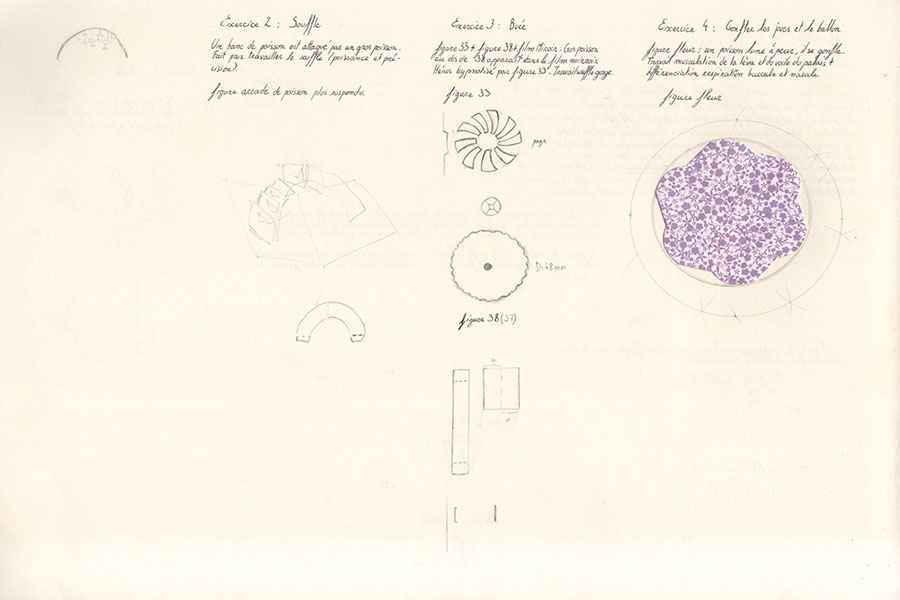 Exercice 2 : Souffle
Un banc de poisson est attaqué par un gros poisson.
Fait pas travailler le souffle (puissance et pré-
cision).
figure arcade de poisson plus suspendu.
Exercice 3 : Buée
figure 33 + figure 38 + film miroir : Gros poisson
au dos de 38 apparaît dans le film miroir.
Héros hypnotisé par figure 33. Travail souffle
figure 33
page
D=48mm
figure 38 (37)
Exercice 4 : Gonfler les joues et le ballon
figure fleur : un poisson lune a peur, il se gonfle.
Travail musculation de la lèvre et du voile du palais +
différenciation respiration buccale et nasale.
figure fleur